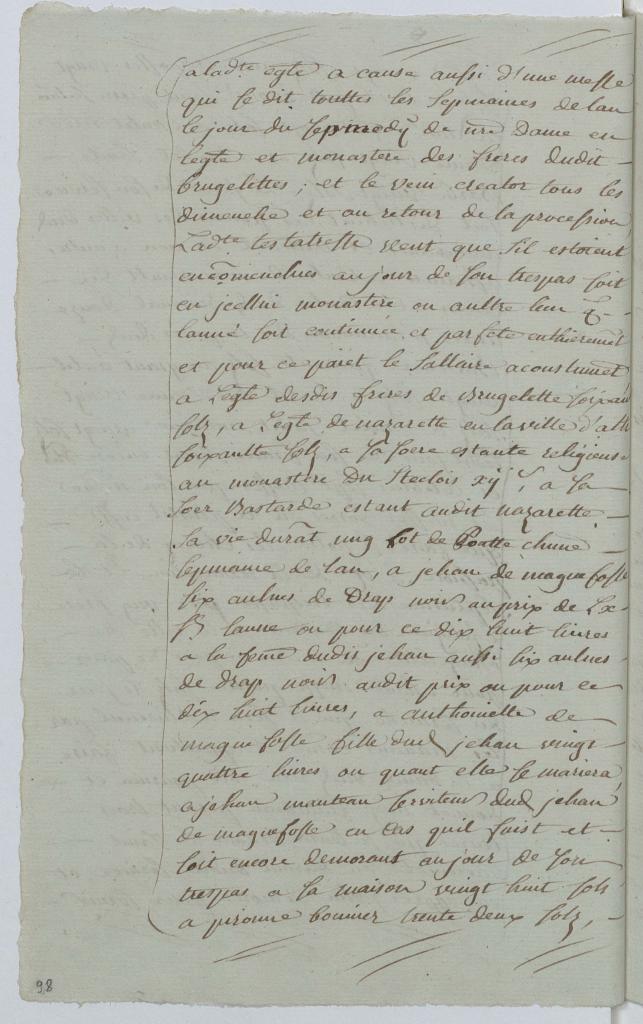 a lad.te egte a cause aussi d'une messe
qui se dit touttes les sepmaines de lan
le jour du sepmedÿ de nre Dame en
legte et monastere des freres dudit
brugelettes; et le veni creator tous les
dimenche et au retour de la procession
Ladte testatresse veut que sil estoient
encōmenchées au jour de son trespas soit
en jcellui monastere ou aultre lieu
lanné soit continuée et parfete enthieremēt
et pour ce paiet le sallaire acoustumet
a Legte desdis freres de Brugelette soixan
solz, a Legte de nazarette en la ville d'ath
soixantte solz, a sa soere estante religieuse
au monastere Du xij s, a sa
soer Bastarde estant audit nazarette
sa vie durāt ung lot de chūne
sepmaine de lan, a jehan de maquefosse
six aulnes de Drap noir au prix de Lx
s laune ou pour ce dix huit livres
a la feme dudis jehan aussi six aulnes
de drap noir audit prix ou pour ce
dix huit livres, a anthoinette de
maquefosse fille dud jehan vingt
quattre livres ou quant elle se mariera
a jehan manteau serviteur dud jehan
de maquefosse en cas quil fuist et
soit encore demorant au jour de son
trespas a sa maison vingt huit sols
a pironne trente deux solz,
98